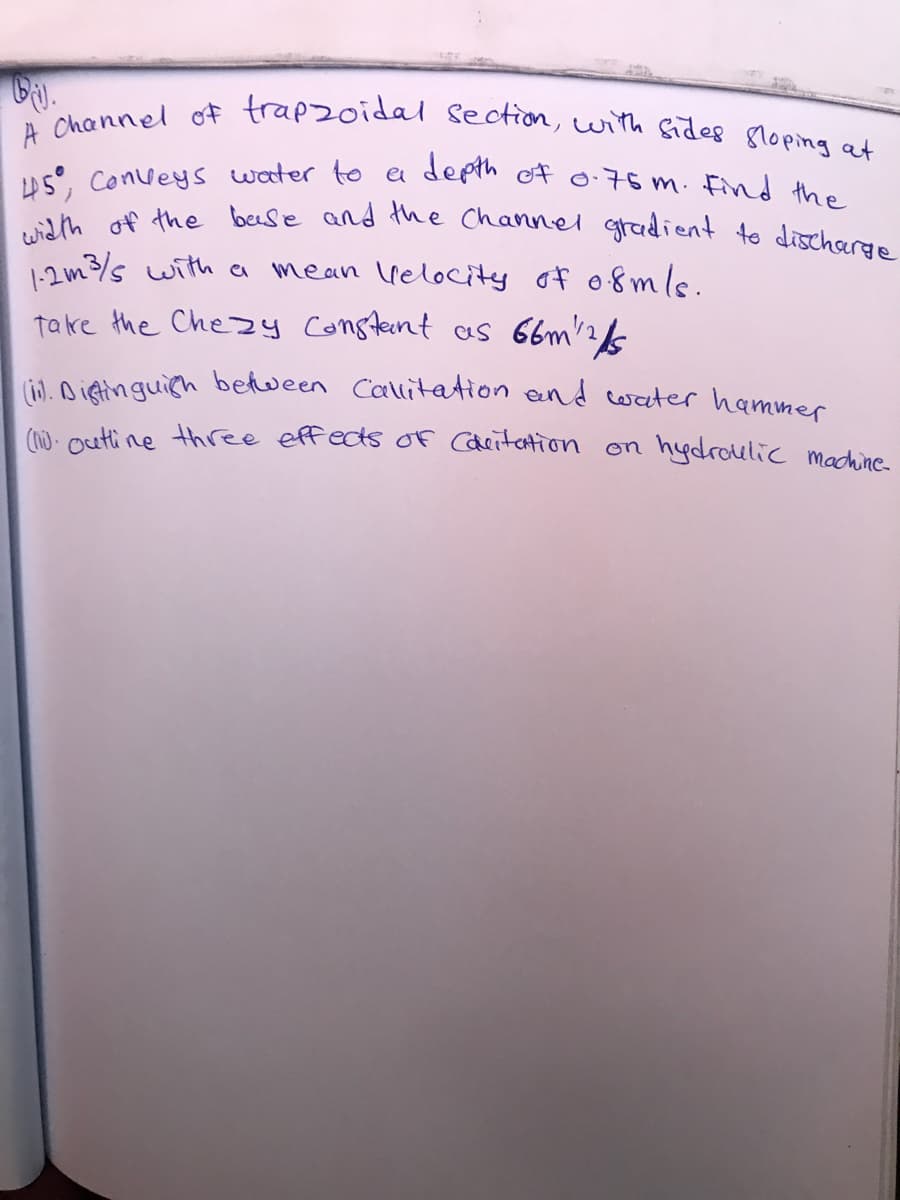 (b)(i).
A Channel of trapzoidal Section, with sides sloping at
45°, Conveys water to a depth of 0.75 m. Find the
width of the base and the Channel gradient to discharge
1.2m³/s with a mean velocity of 0.8m/s.
Take the Chezy Constant as 66m^1/2/s
(ii). Distinguish between Cavitation and water hammer
(iii). outline three effects of Cavitation on hydraulic machine-